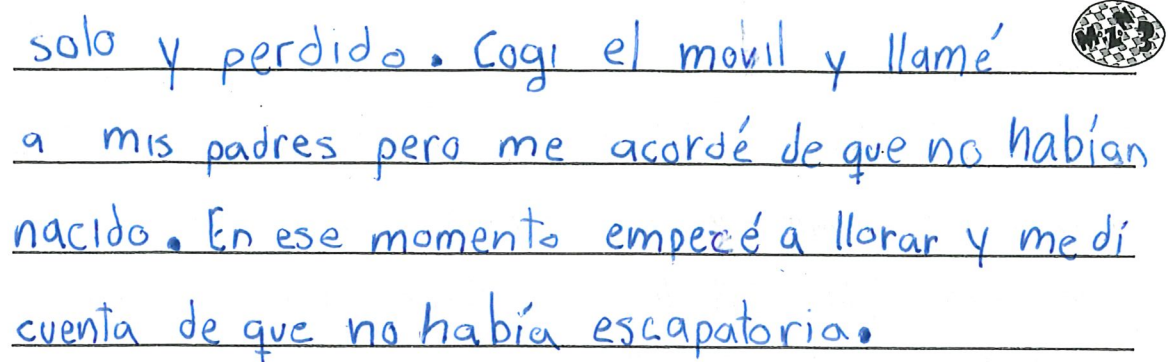 solo y perdido. Cogi el movil y llamé
a mis padres pero me acordé de que no habían
nacido. En ese momento empecé a llorar y me dí
cuenta de que no había escapatoria.